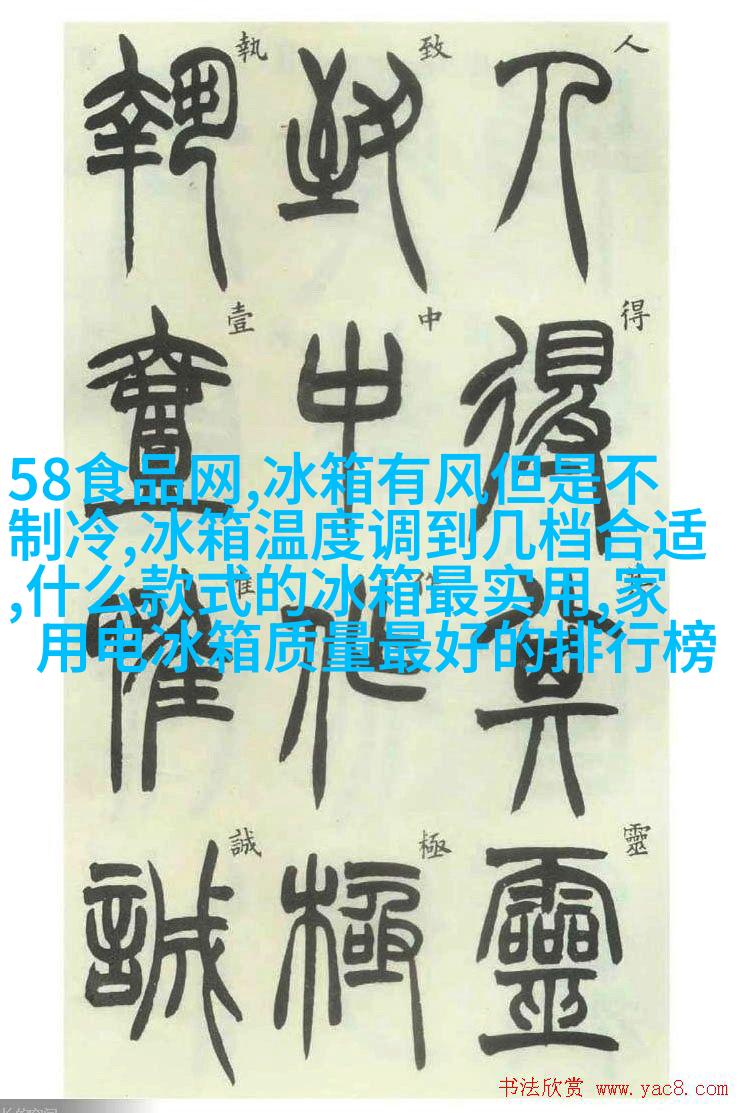 58食品网,冰箱有风但是不
制冷,冰箱温度调到几档合适
,什么款式的冰箱最实用,家
用电冰箱质量最好的排行榜
人得其靈
致中作極
執壹惟誠
人
得
靈
致
中
極
執
壹
誠
书法欣赏 www.yac8.com